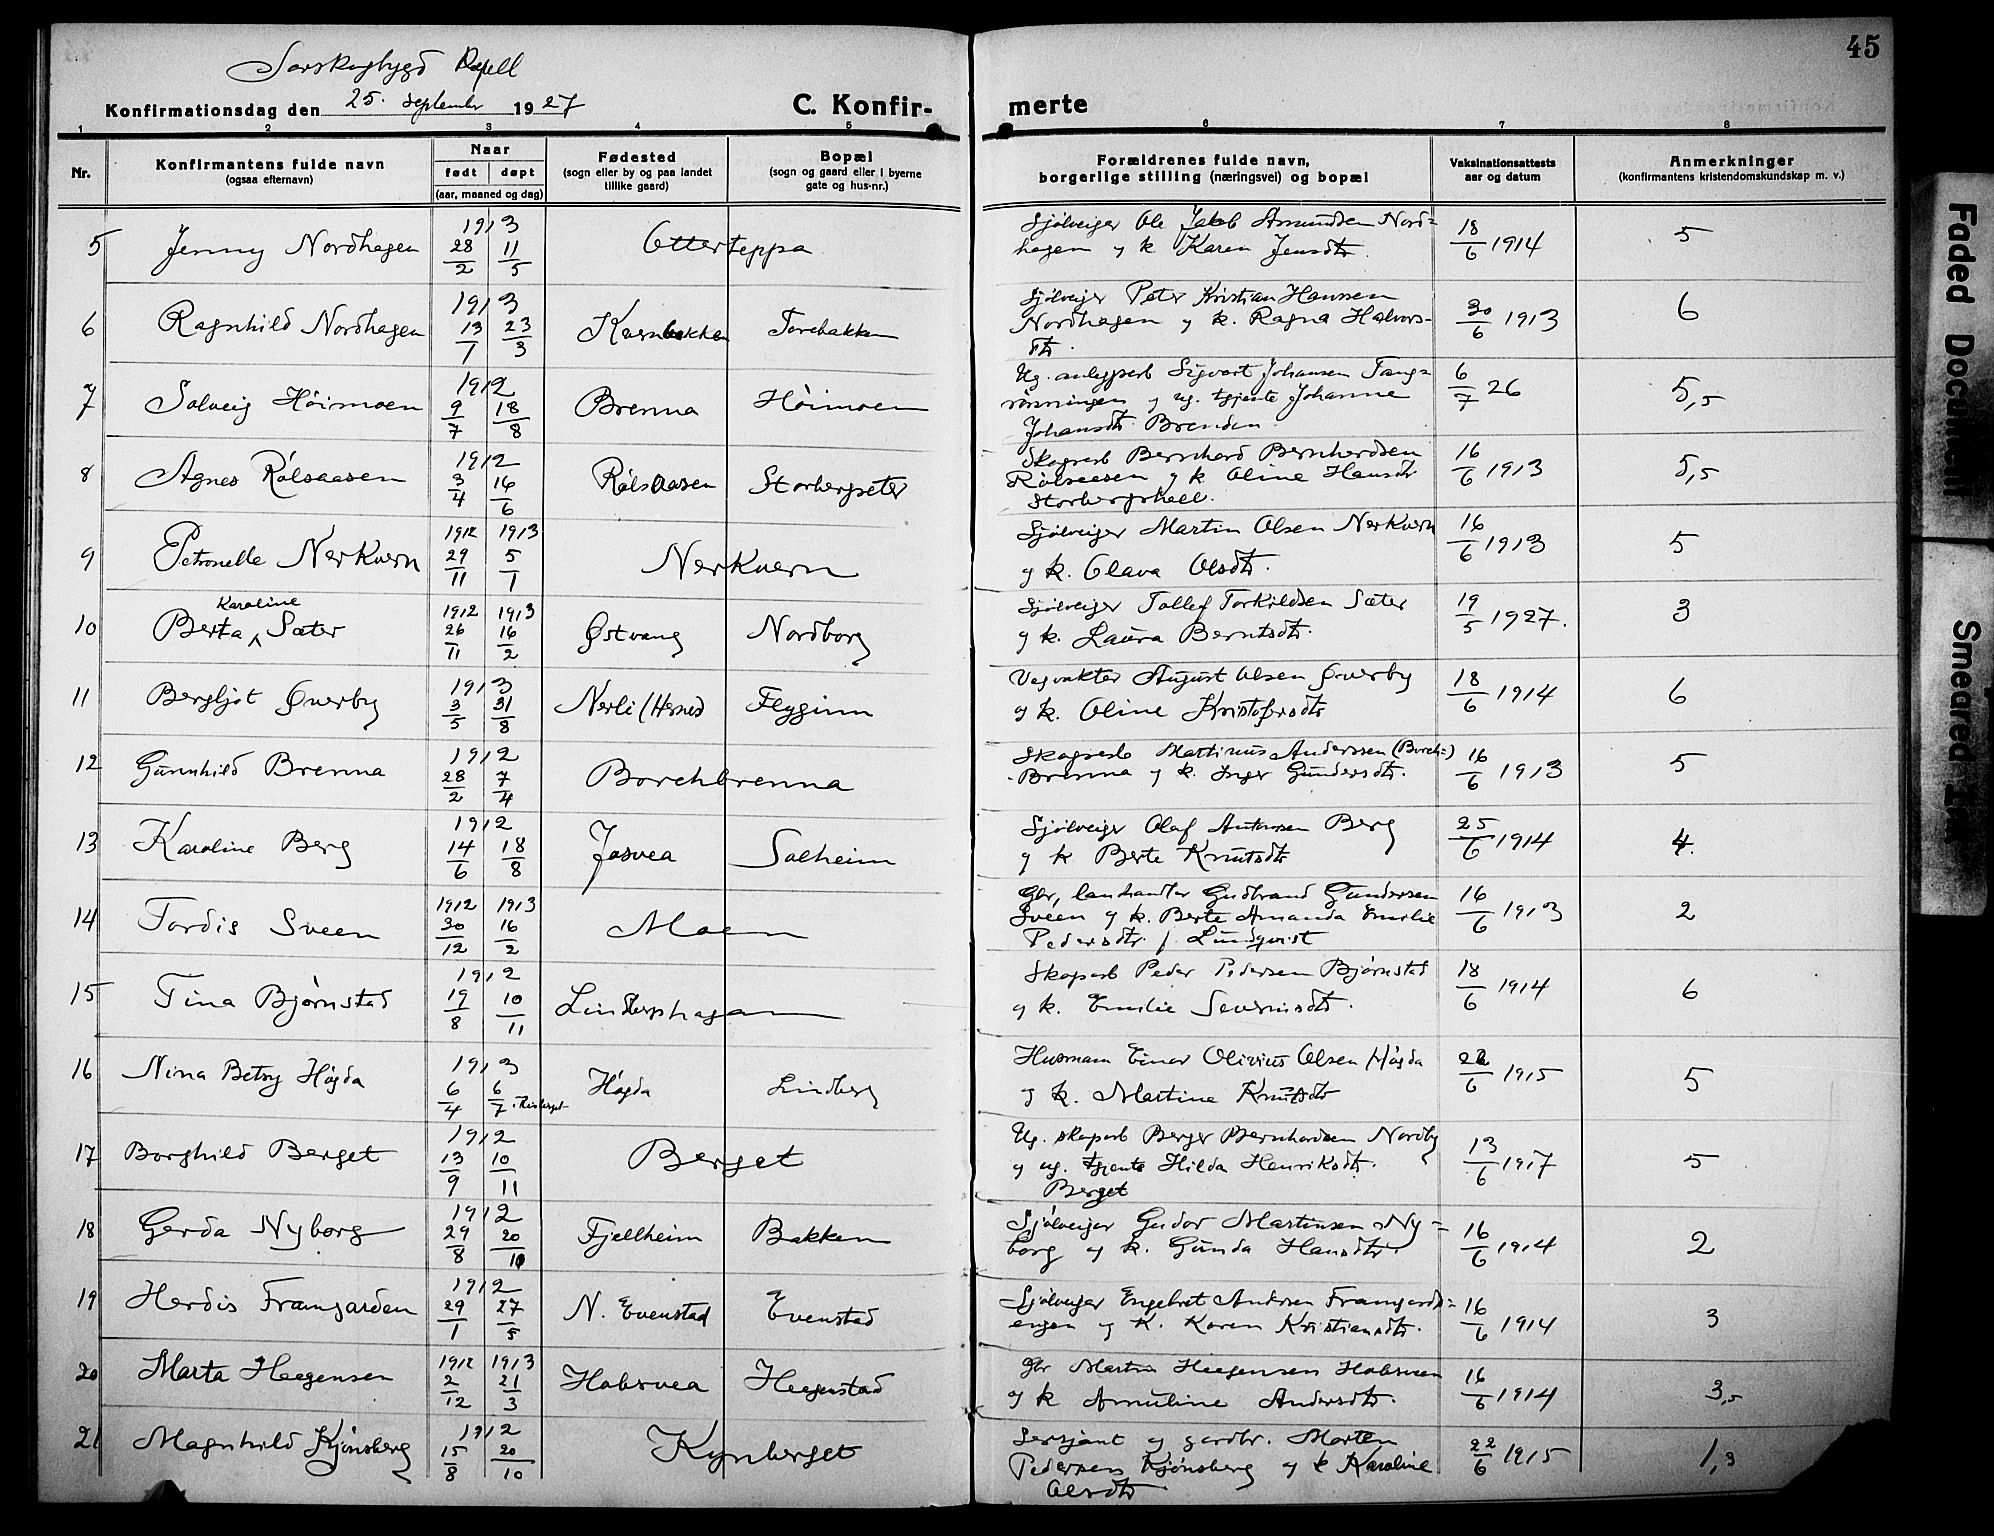 45
Sørskogbygd Kapell
Konfirmationsdag den 25. september 1927 C. Konfir- merte
1 2 3 4 5 6 7 8
Nr. Konfirmantens fulde navn (ogsaa efternavn) Naar født døpt (aar, maaned og dag) Fødested (sogn eller by og paa landet tillike gaard) Bopæl (sogn og gaard eller i byerne gate og hus-nr.) Forældrenes fulde navn, borgerlige stilling (næringsvei) og bopæl Vaksinationsattests aar og datum Anmerkninger (konfirmantens kristendomskundskap m. v.)
5 Jenny Nordhagen 1913 28/2 11/5 Otterteppa Sjølveiger Ole Jakob Amundsen Nord=
hagen og k Karen Jensdtr. 18/6 1914 5
6 Ragnhild Nordhagen 1913 13/1 23/3 Kvernbakken Torebakken Sjølveiger Peter Kristian Hanssen
Nordhagen og k. Ragna Halvors-
dtr. 30/6 1913 6
7 Solveig Höimoen 1912 9/7 18/8 Brenna Höimoen Ug. anleggsarb Sigvart Johansen Tang=
og ug. tjente Johanne
Johansdtr Brenden 6/7 26 5,5
8 Agnes Rålsaasen 1912 3/4 16/6 Rålsaasen Storbergseter Skogsarb Bernhard Bernhardsen
Rålsaasen og k Oline Hansdtr
16/6 1913 5,5
9 Petronelle NerKvern 1912 29/11 1913 5/1 NerKvern Sjølveiger Martin Olsen NerKvern
og k. Olava Olsdtr. 16/6 1913 5
10 Berta Karoline Sæter 1912 26/11 1913 16/2 Østvang Nordborg Sjølveiger Tollef Torkildsen Sæter
og k. Laura Berntsdtr. 19/5 1927. 3
11 Bergljot Øverby 1913 3/5 31/8 Nerli (Hernes) Flyginn Vegvakter August Olsen Øverby
og k. Oline Kristofersdtr 18/6 1914 6
12 Gunnhild Brenna 1912 28/2 7/4 Borchbrenna Skogsarb Martinus Anderssen (Borch=)
Brenna og k. Inger Gundersdtr. 16/6 1913 5
13 Karoline Berg 1912 14/6 18/8 Jøsvea Solheim Sjølveiger Olaf Antonsen Berg
og k Berte Knutsdtr 25/6 1914 4.
14 Tordis Sveen 1912 30/12 1913 16/2 Moen Gbr, landhandler Gudbrand Gundersen
Sveen og k. Berte Amanda Emilie
Pedersdtr. f. Lundqvist 16/6 1913 2
15 Tina Bjørnstad 1912 19/8 10/11 Lindbergshagen Skogsarb Peder Pedersen Bjørnstad
og k. Emilie Severinsdtr. 18/6 1914 6
16 Nina Betsy Högda 1913 6/4 6/7 Högda Lindberg Husmann Einar Olivius Olsen Högda
og k. Martine Knutsdtr 22/6 1915 5
17 Borghild Berget 1912 13/9 10/11 Berget Ug. skogsarb Berger Bernhardsen Nordby
og ug. tjente Hilda Henriksdtr.
Berget 13/6 1917 5
18 Gerda Nyborg 1912 29/8 20/10 Fjellheim Bakken Sjølveiger Gudor Martinsen Ny=
borg og k. Gunda Hansdtr. 16/6 1914 2
19 Herdis Framgarden 1912 29/1 27/5 N. Evenstad Evenstad Sjølveiger Engebret Andersen Framgards=
engen og k. Karen Kristiansdtr. 16/6 1914 3
20 Marta Heegensen 1912 2/12 1913 21/3 Habervea Heggenstad Gbr Martin Heegensen
og k Annuline Andersdtr. 16/6 1914 3,5
21 Magnhild Kjønsberg 1912 15/8 20/10 Kynberget Sersjant og gardbr. Morten
Pedersen Kjønsberg og k Karoline
Olsdtr 22/6 1915 1,3
Faded Document
Smeared Ink